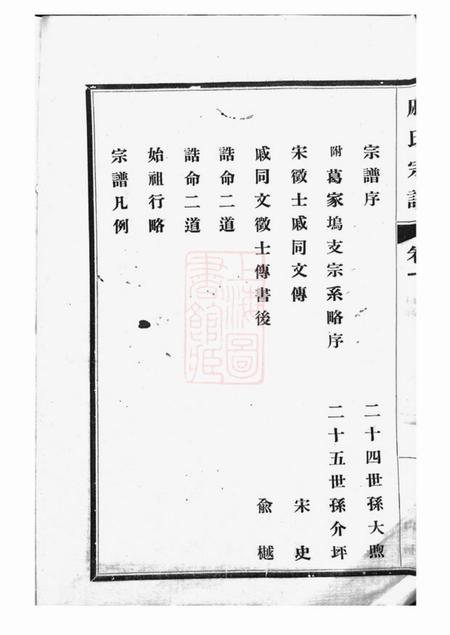 戚氏宗譜 卷一
宗譜序 二十四世孫大煦
附葛家塢支宗系略序 二十五世孫介坪
宋徵士戚同文傳 宋史
戚同文徵士傳書後 俞樾
誥命二道
誥命二道
始祖行略
宗譜凡例
上海圖書館藏